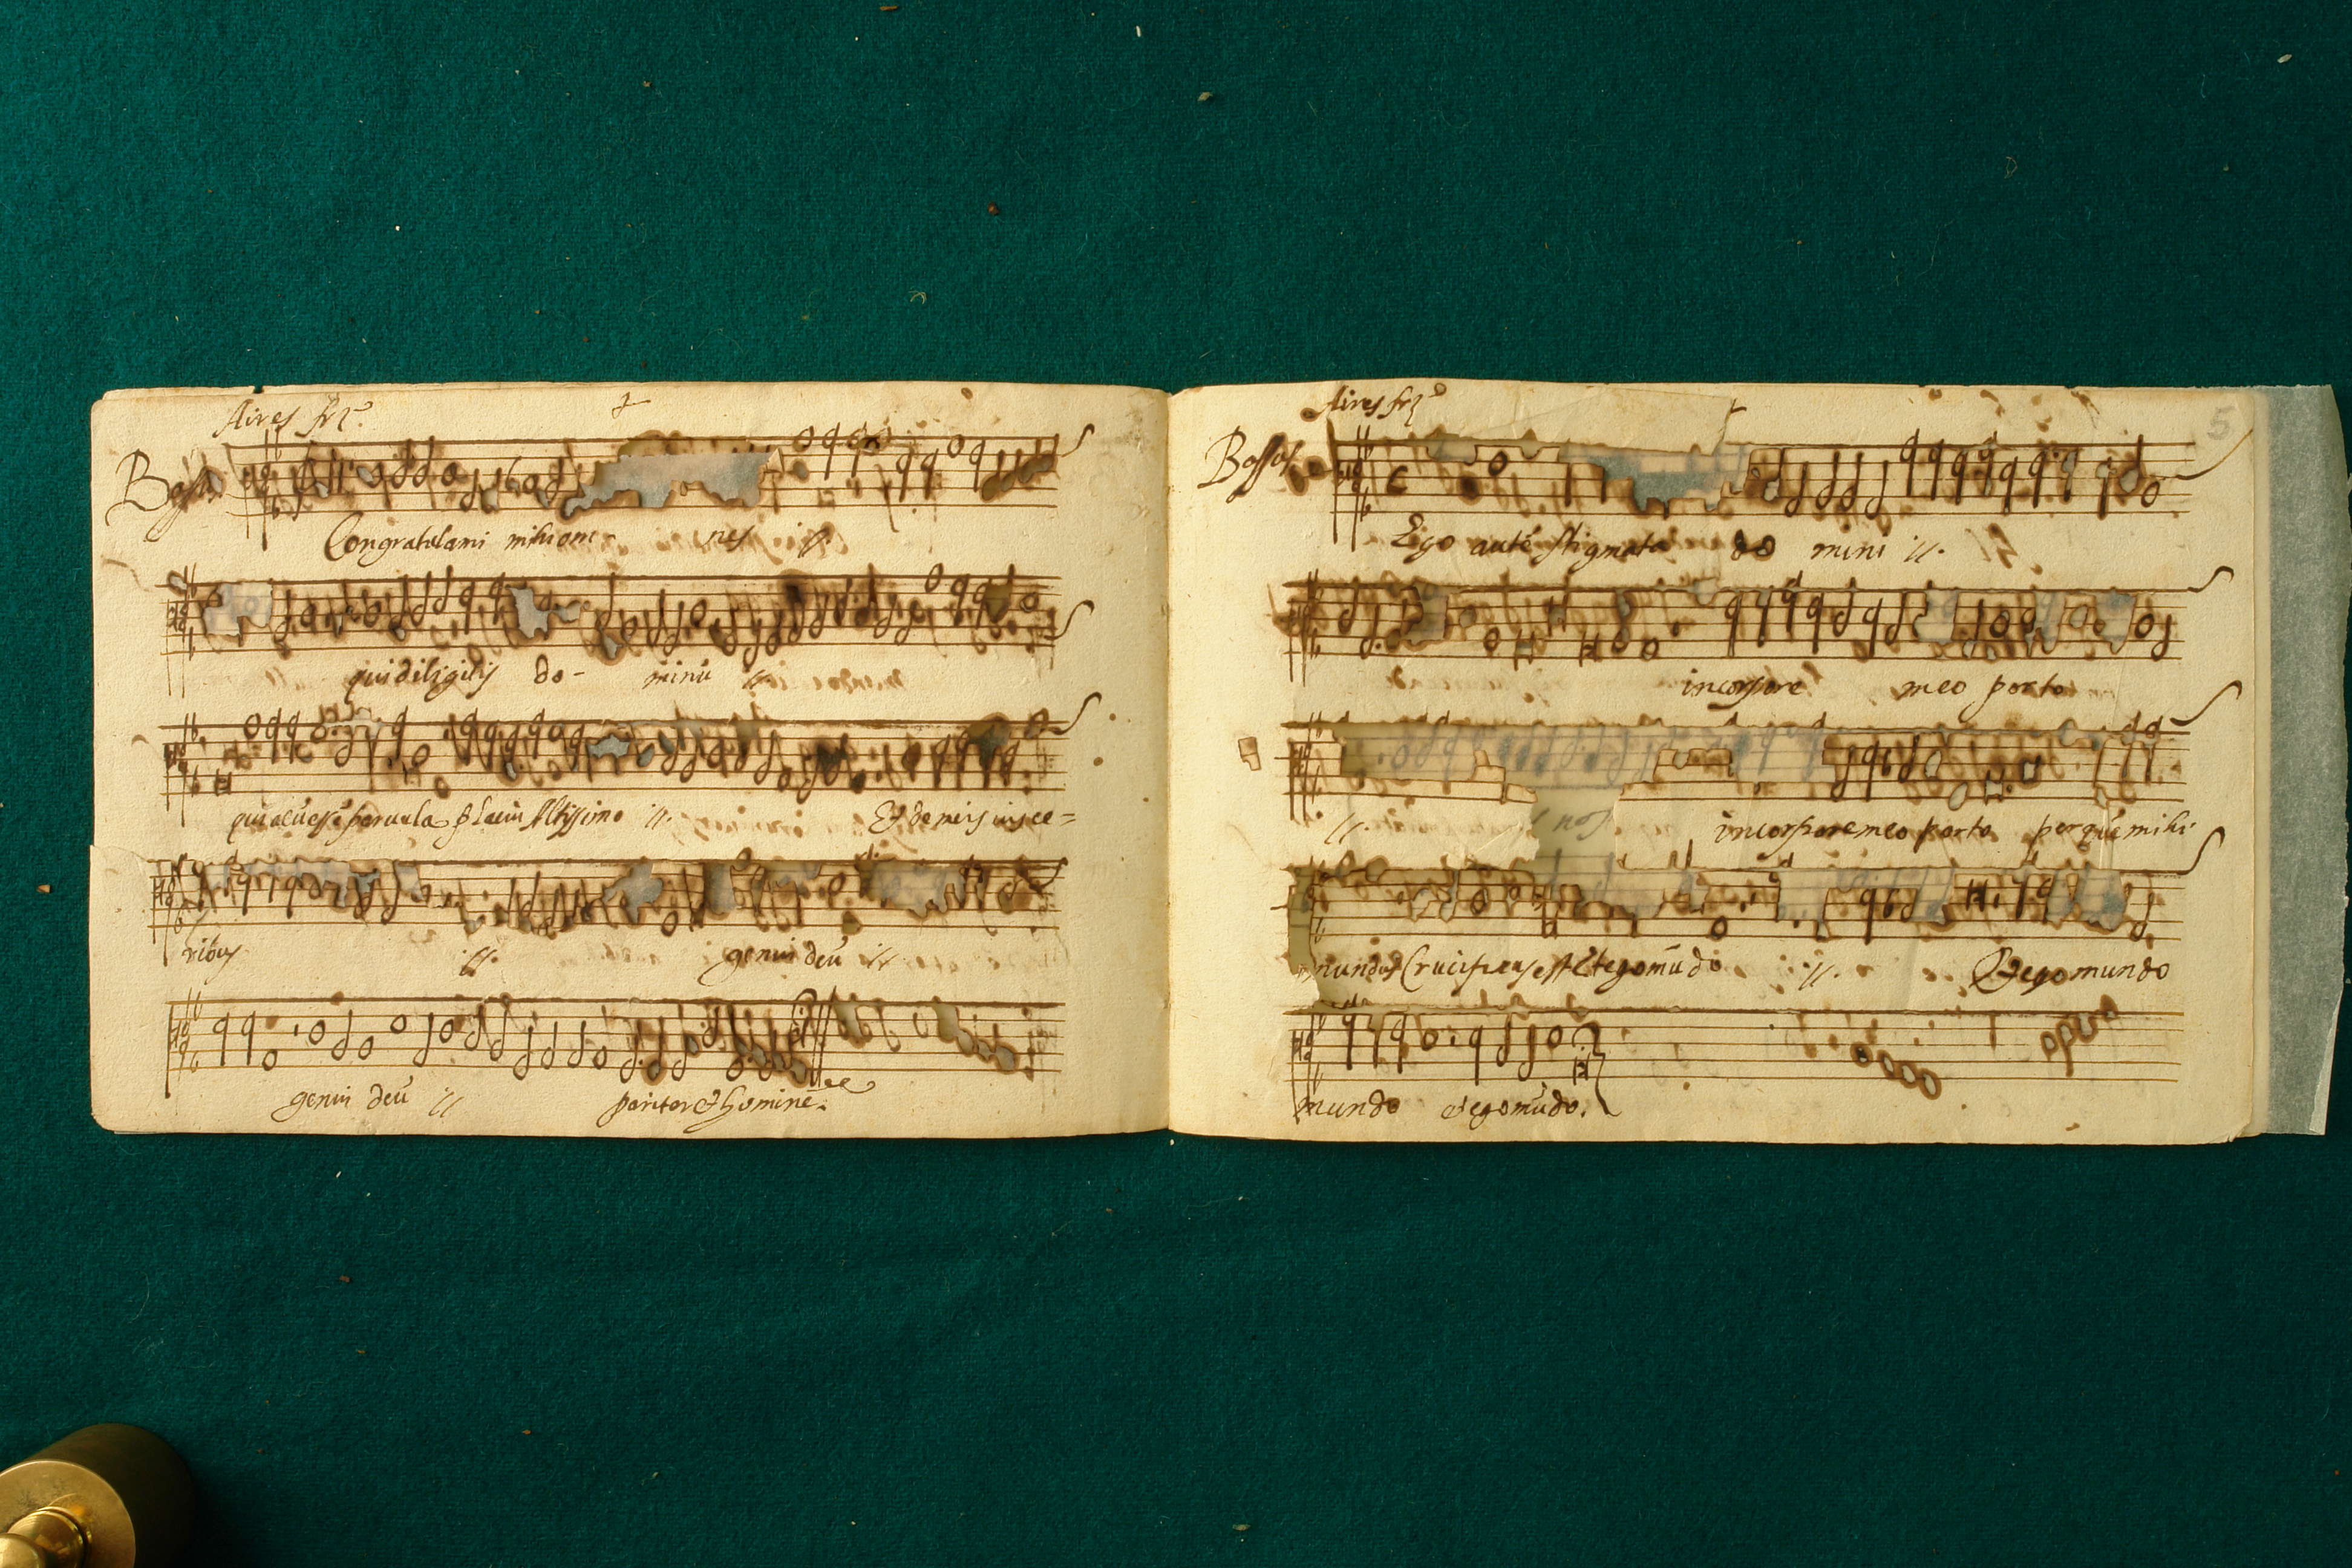 Aires frz
Bassus
Congratulami mihi om- nes ij.
qui diligitis do- minũ ij
quia cũ essẽ paruula placui Altissimo ij. Et de meis visce=
ribus ij. genui deũ ij
genui deũ ij pariter & hominẽ.
5
Aires frz
Bassus
Ego autẽ stigmata do mini ij.
in corpore meo porto
ij. in corpore meo porto per quẽ mihi
mundus Crucifixus est Et ego mũdo ij. Et ego mundo
mundo et ego mũdo.